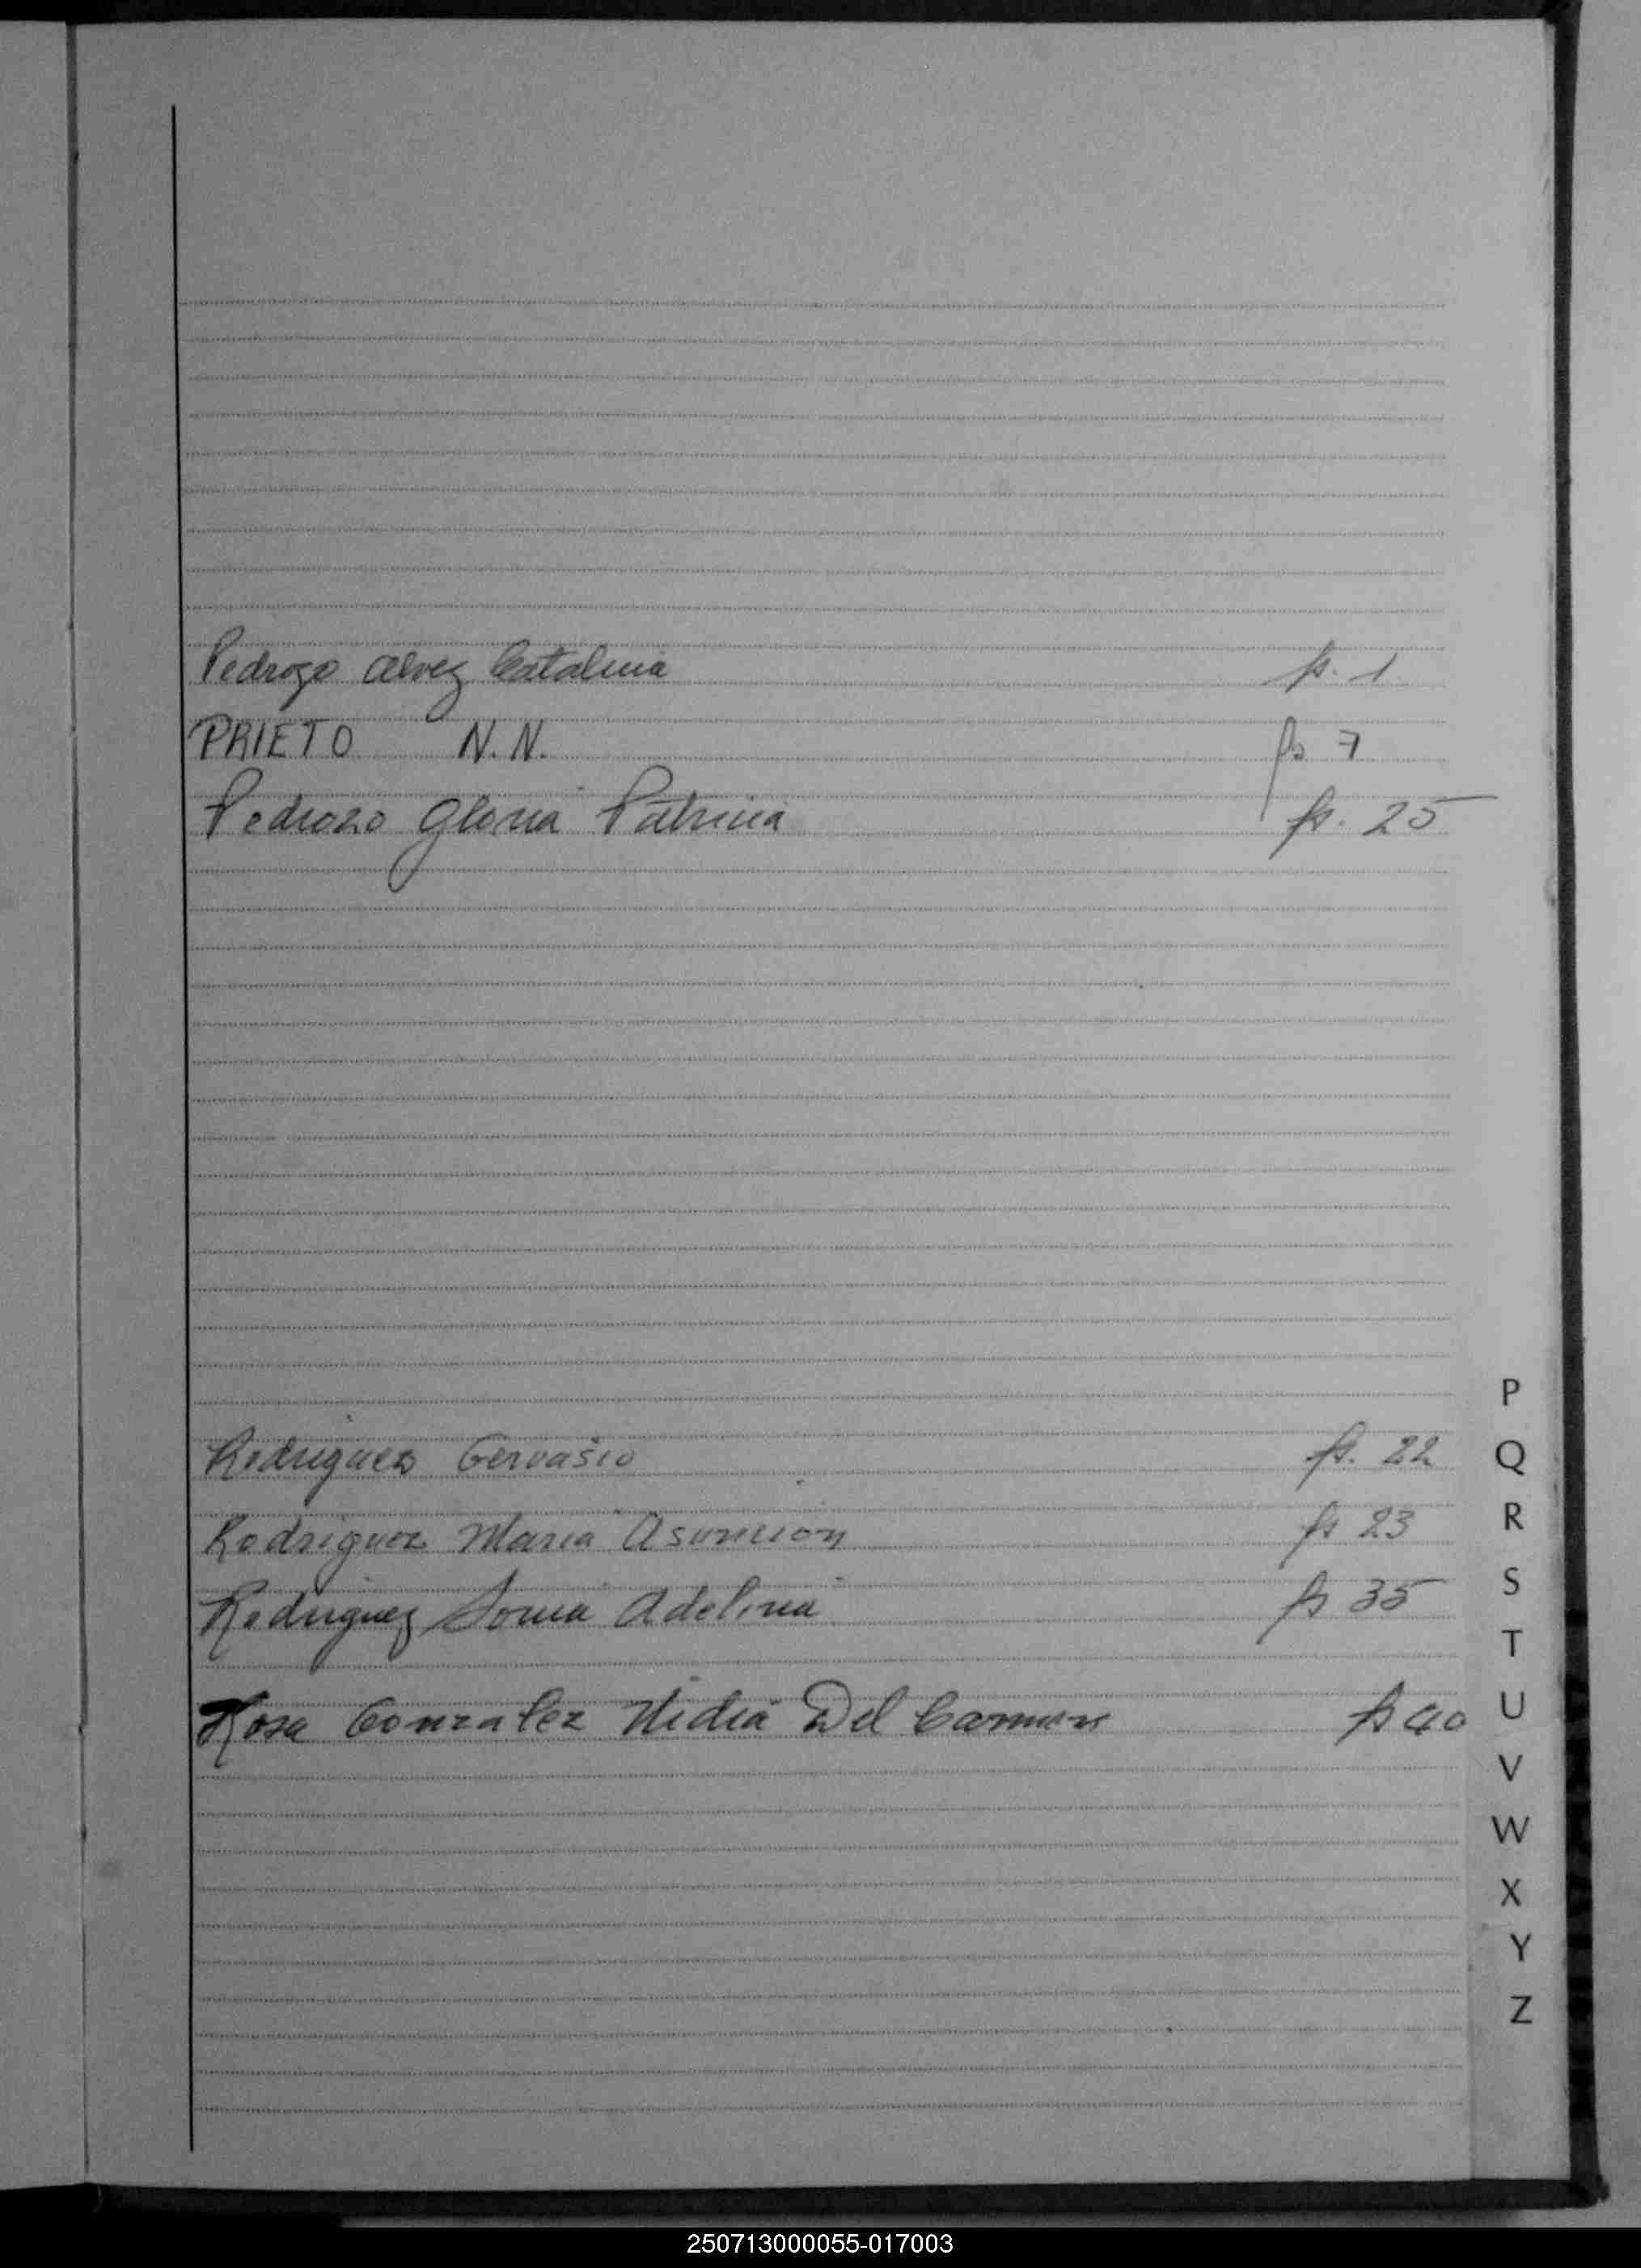 Pedrozo Alvez Catalina fs. 1
PRIETO N.N. fs 7
Pedrozo Gloria Patricia fs. 25
Rodriguez Gervasio fs. 22
Rodriguez Maria Asuncion fs 23
Rodriguez Sonia Adelina fs 35
Rosa Gonzalez Nidia Del Carmen fs 40
P
Q
R
S
T
U
V
W
X
Y
Z
250713000055-017003